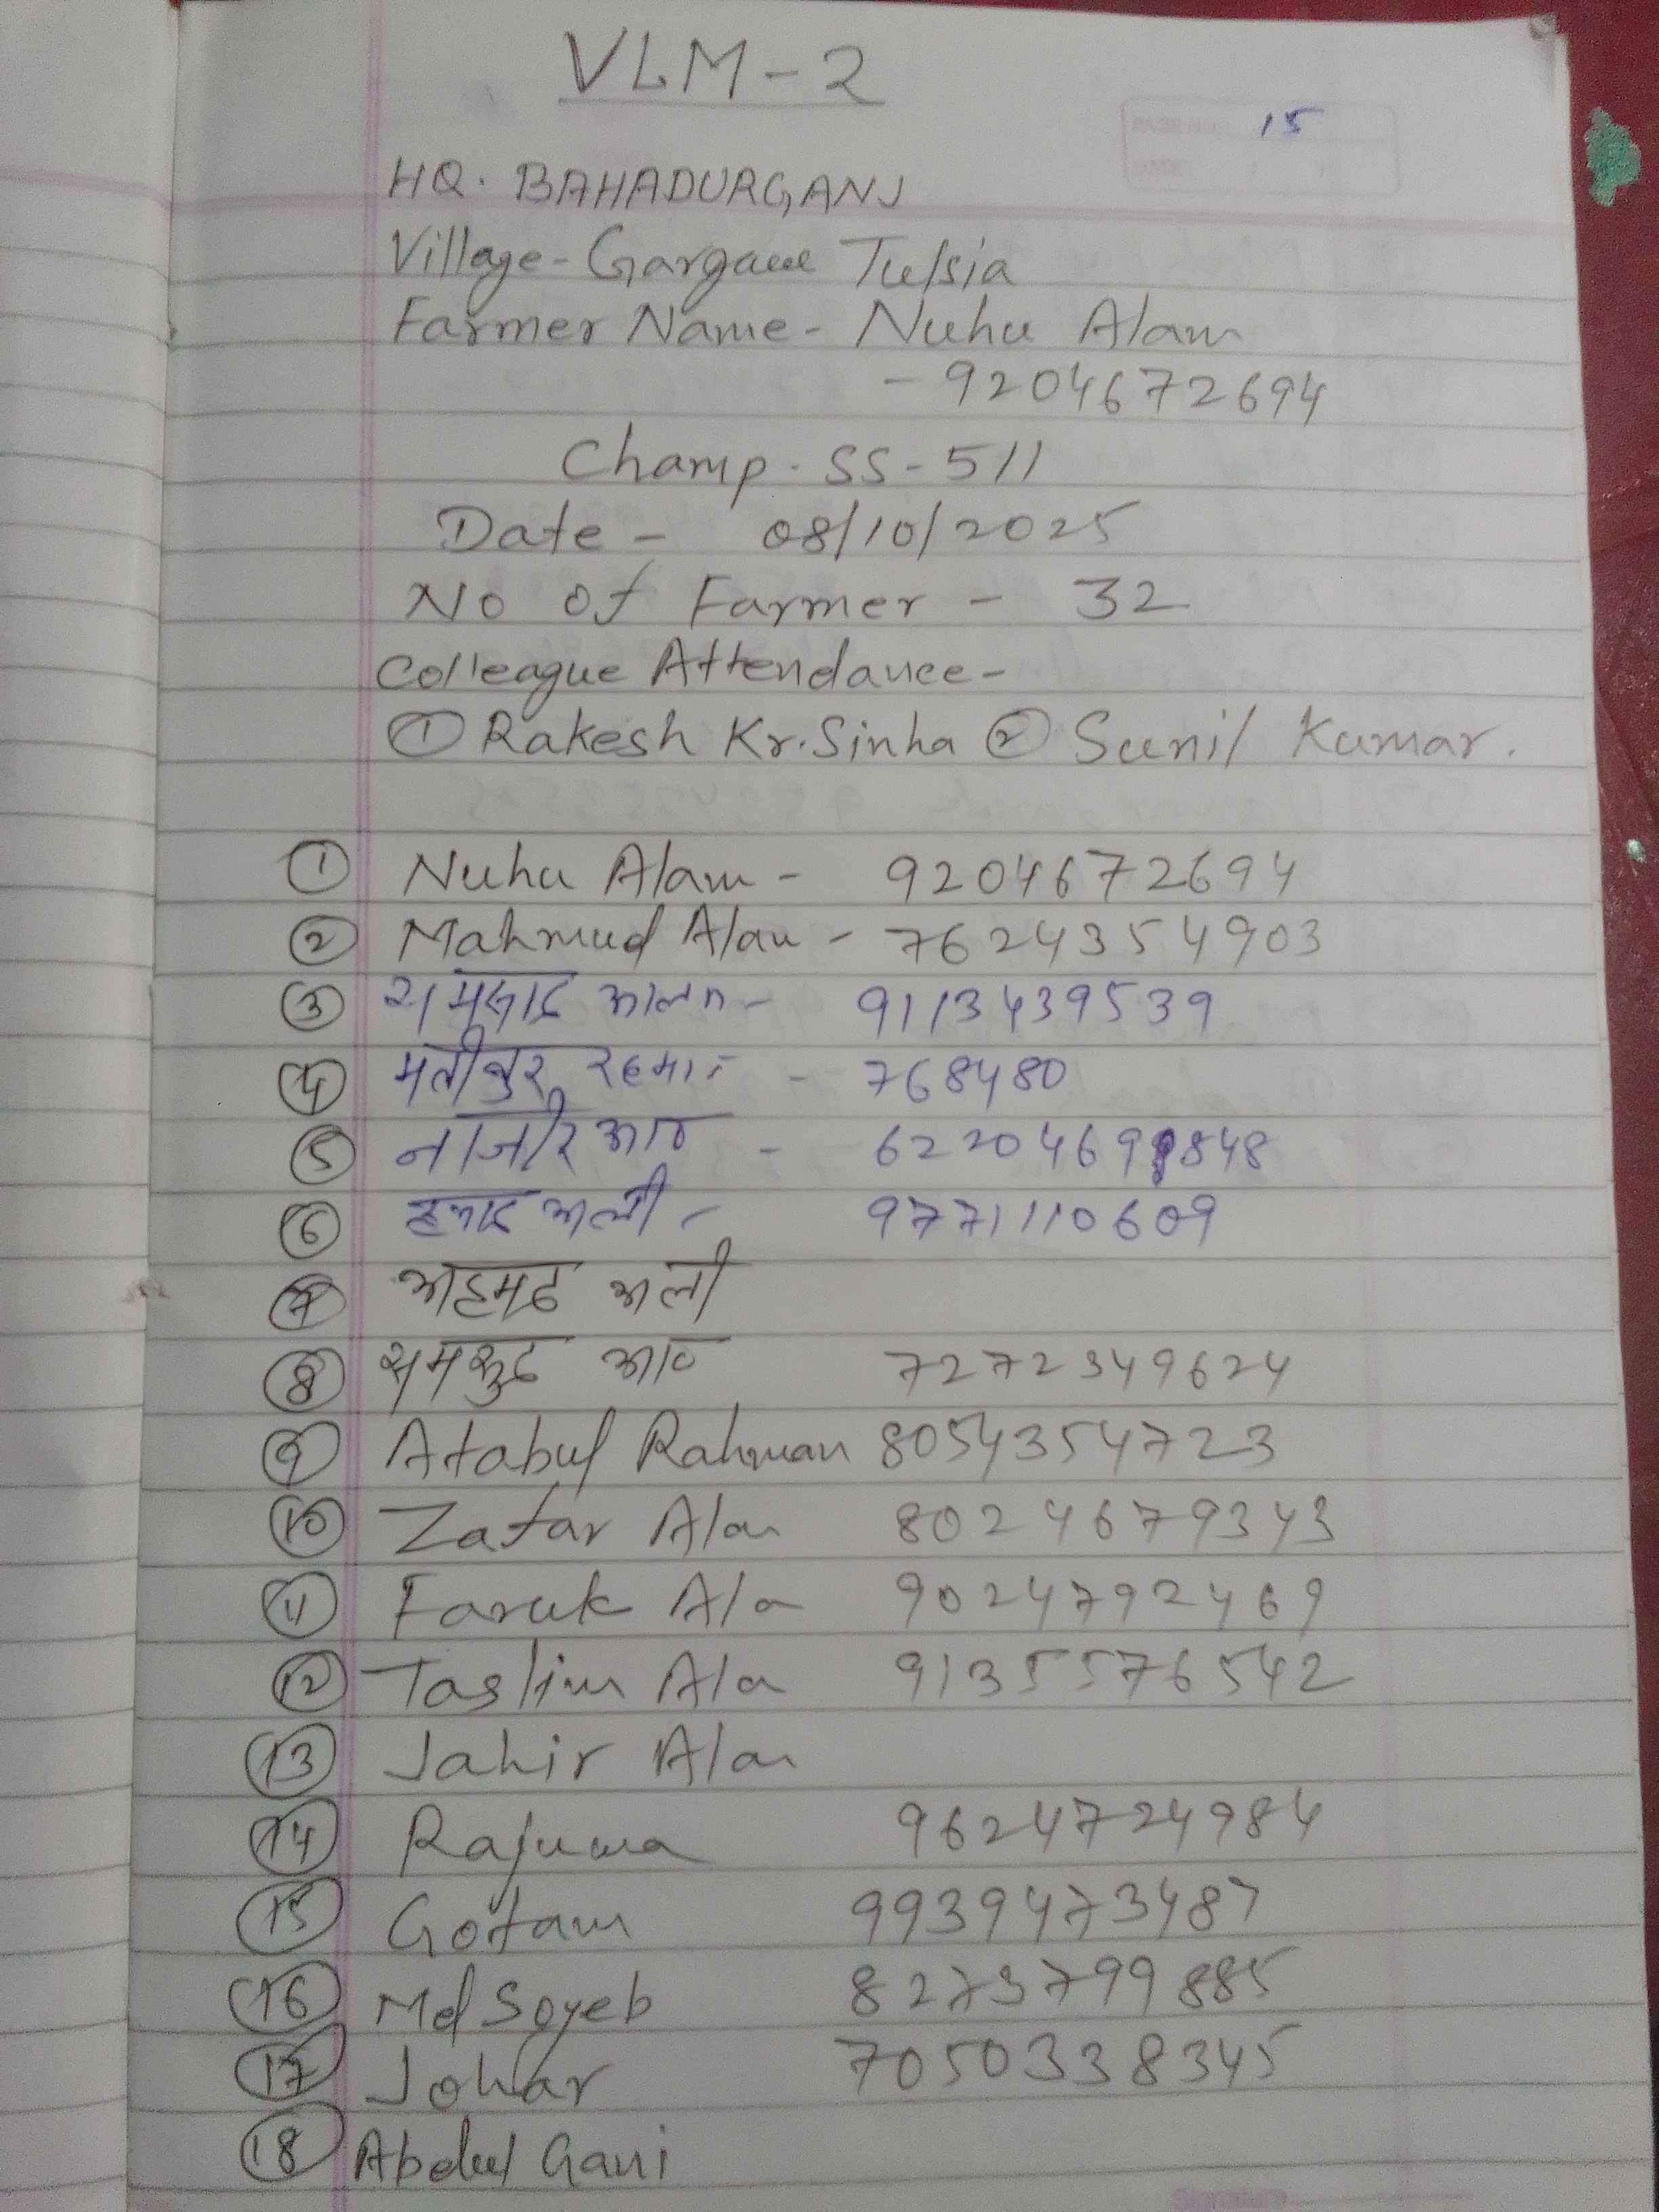 VLM-2
15
HQ. BAHADURGANJ
Village- Gargaue Tulsia
Farmer Name- Nuhu Alam
- 9204672694
Champ. SS-511
Date - 08/10/2025
No of Farmer - 32
Colleague Attendance-
① Rakesh Kr. Sinha ② Sunil Kumar.
① Nuhu Alam - 9204672694
② Mahmud Alam - 7624354903
③ आलम - 9113439539
④ रहमान - 768480
⑤ 
⑥ अली - 9771110609
⑦ अहमद अली
⑧ 7272349624
⑨ Atabul Rahman 8054354723
⑩ Zafar Alam 8024679343
⑪ Faruk Ala 9024792469
⑫ Taslim Ala 9135576542
⑬ Jahir Alam
⑭ Rajuwa 9624724984
⑮ Gotam 9939473487
⑯ Md Soyeb 8273799885
⑰ Johar 7050338345
⑱ Abdul Gani